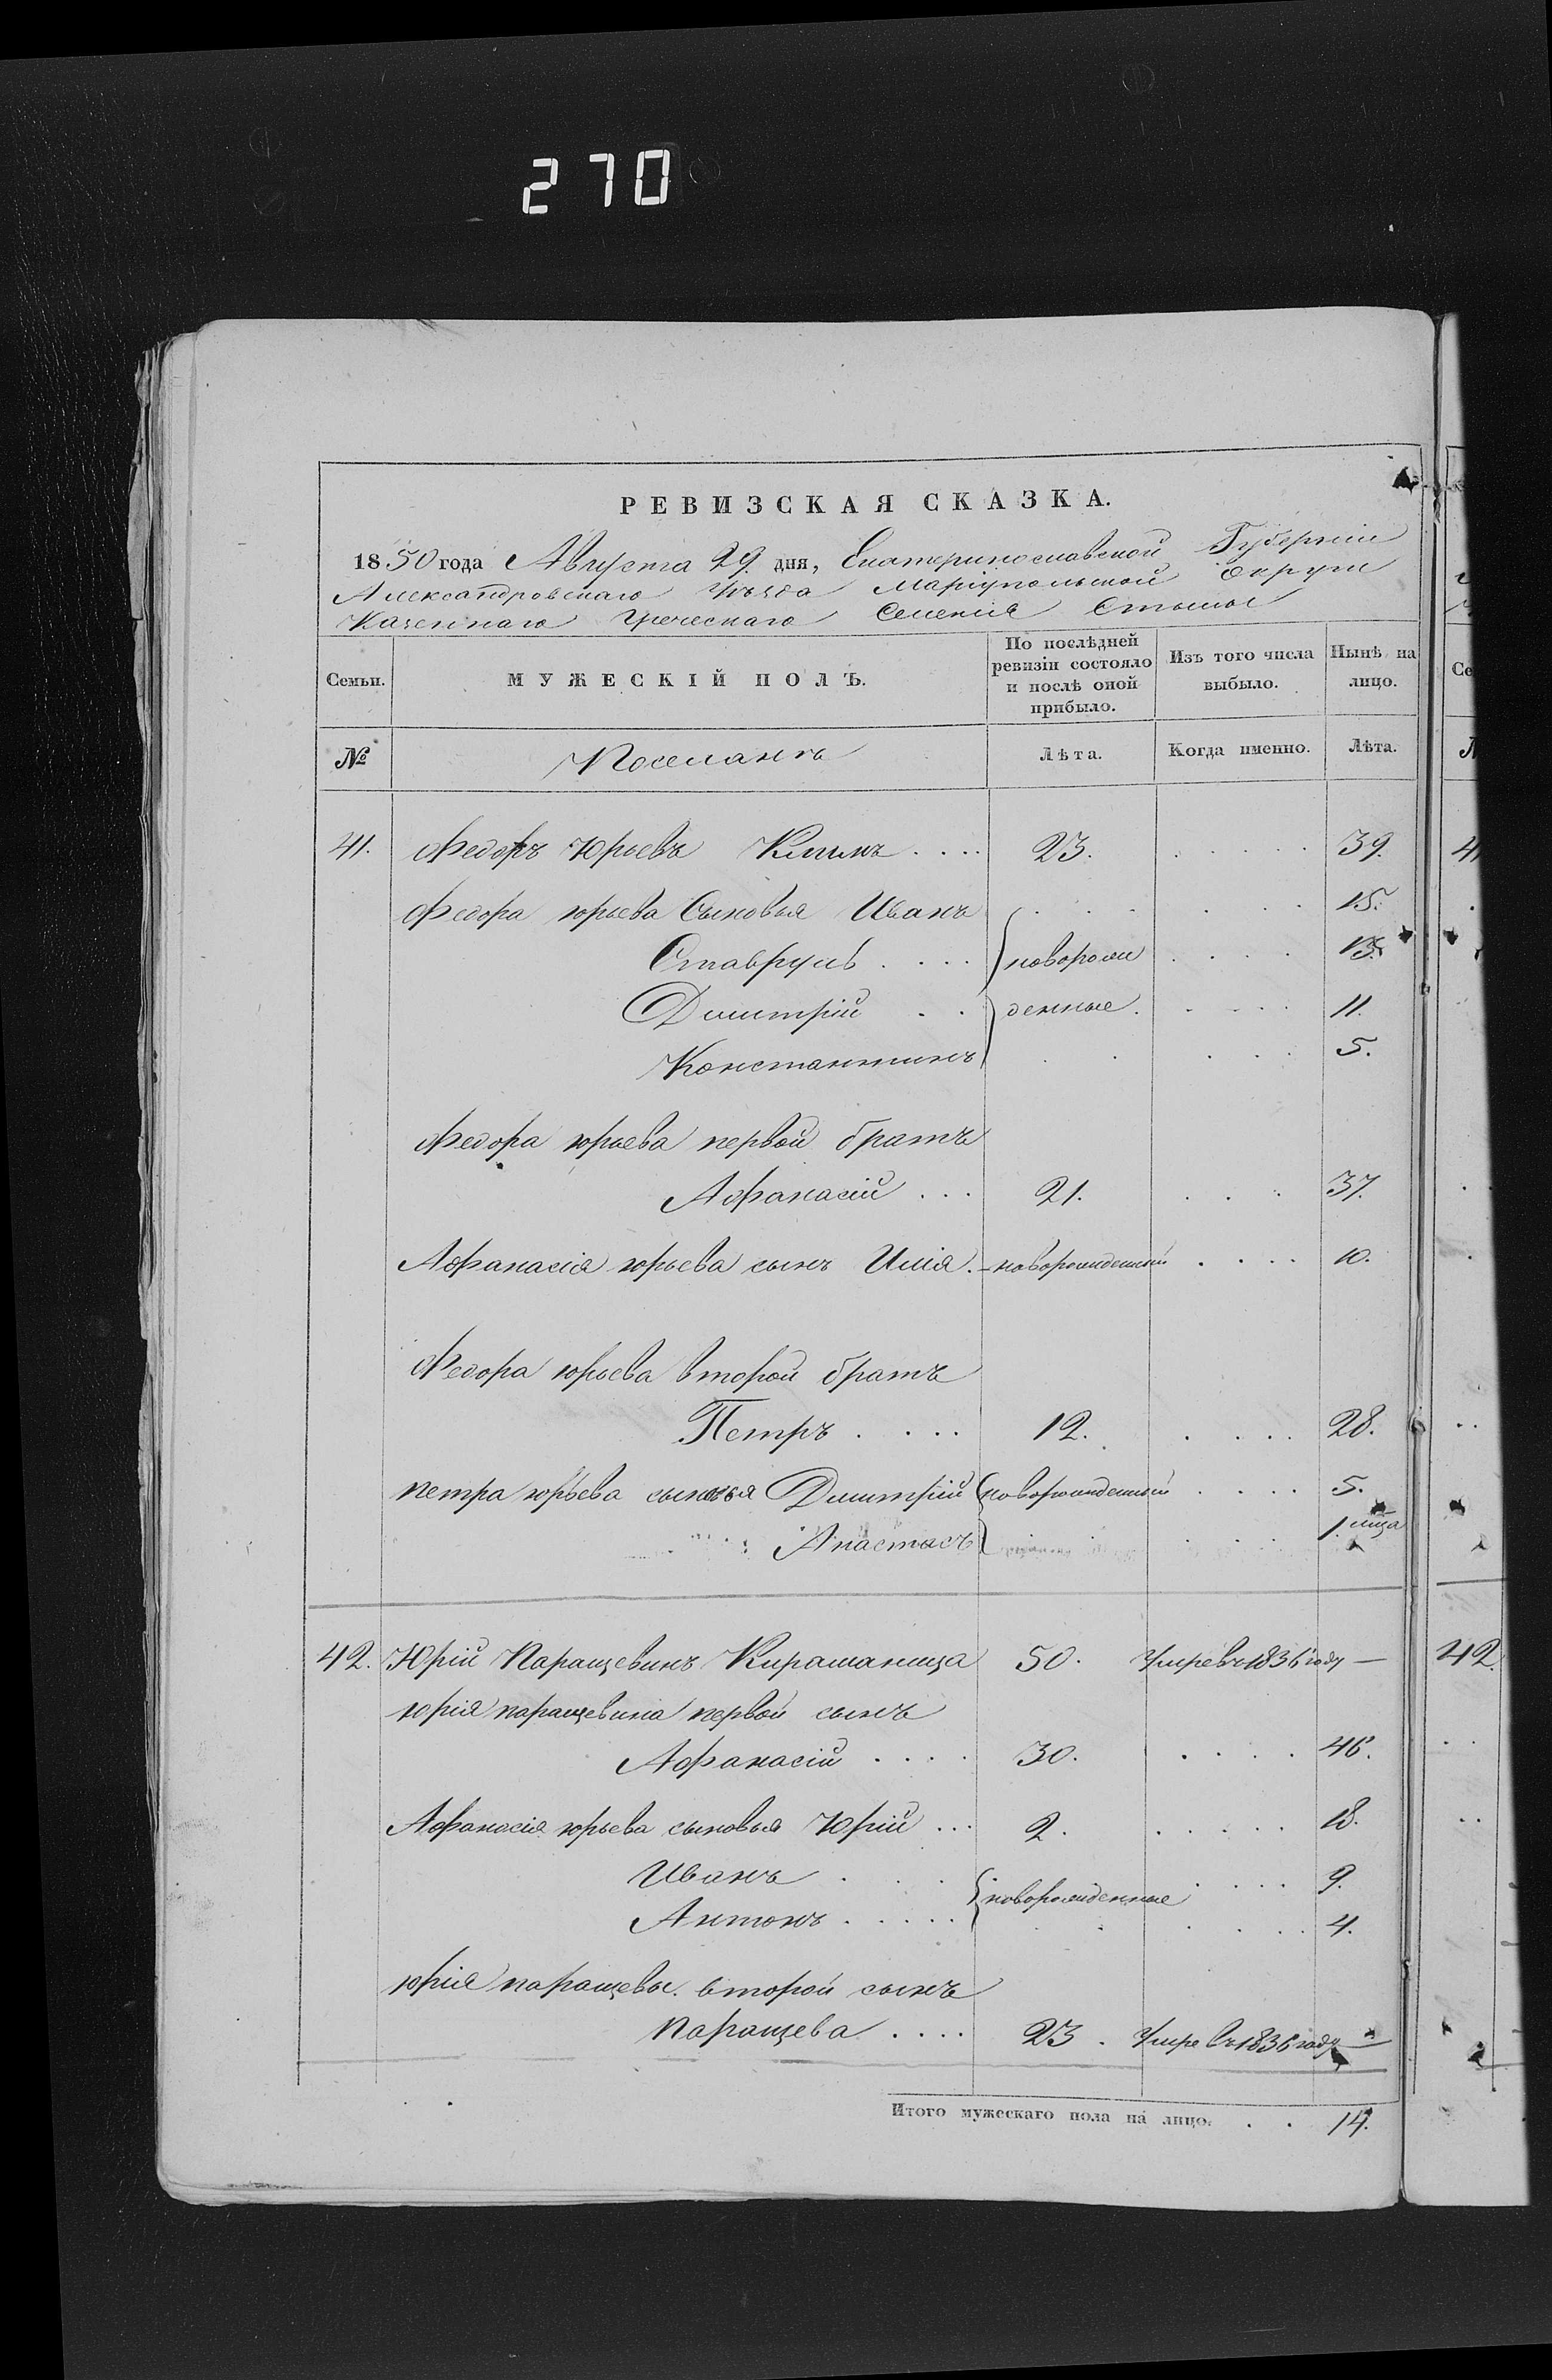 270
РЕВИЗСКАЯ СКАЗКА.
1850 года Августа 29. дня, Екатеринославской Губерніи
Александровскаго Уѣзда Маріупольской Округи
Казеннаго Греческаго Селенія Стылы
Семьи. МУЖЕСКІЙ ПОЛЪ. По послѣдней ревизіи состояло и послѣ оной прибыло. Изъ того числа выбыло. Нынѣ на лицо.
№ Поселянъ Лѣта. Когда именно. Лѣта.
41. Федоръ Юрьевъ 23. 39.
Федора юрьева Сыновья Иванъ 15.
Ставрулъ новорож 13.
Димитрій денные. 11.
Константинъ 5.
Федора юрьева первой братъ
Афанасій 21. 37.
Афанасія юрьева сынъ Илія новорожденный 10.
Федора юрьева второй братъ
Петръ 12. 28.
петра юрьева сыновья Димитрій новорожденный 5.
Анастасъ 1.
42. Юрій Паращевинъ 50. Умре въ 1836 году —
юрія паращевина первой сынъ
Афанасій 30. 46.
Афанасія юрьева сыновья Юрій 2. 18.
Иванъ новорожденные 9.
Антонъ 4.
юрія паращевы. второй сынъ
паращева 23. Умре въ 1836 году —
Итого мужескаго пола на лицо. 14.
42.